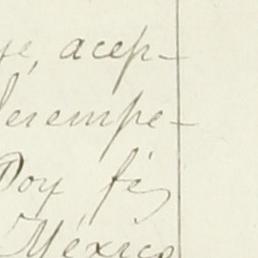 acep-
desempe-
Doy fé,
México